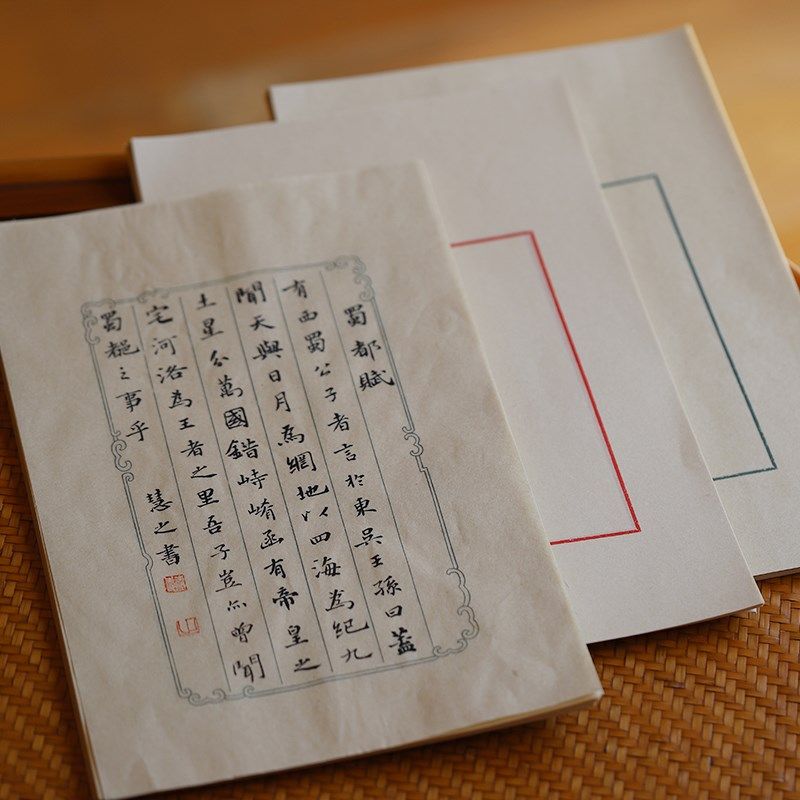 蜀都賦
有西蜀公子者言於東吳王孫曰蓋
聞天與日月為網地以四海為紀九
土星分萬國錯峙崤函有帝皇之
宅河洛為王者之里吾子豈亦曾聞
蜀都之事乎 慧之書